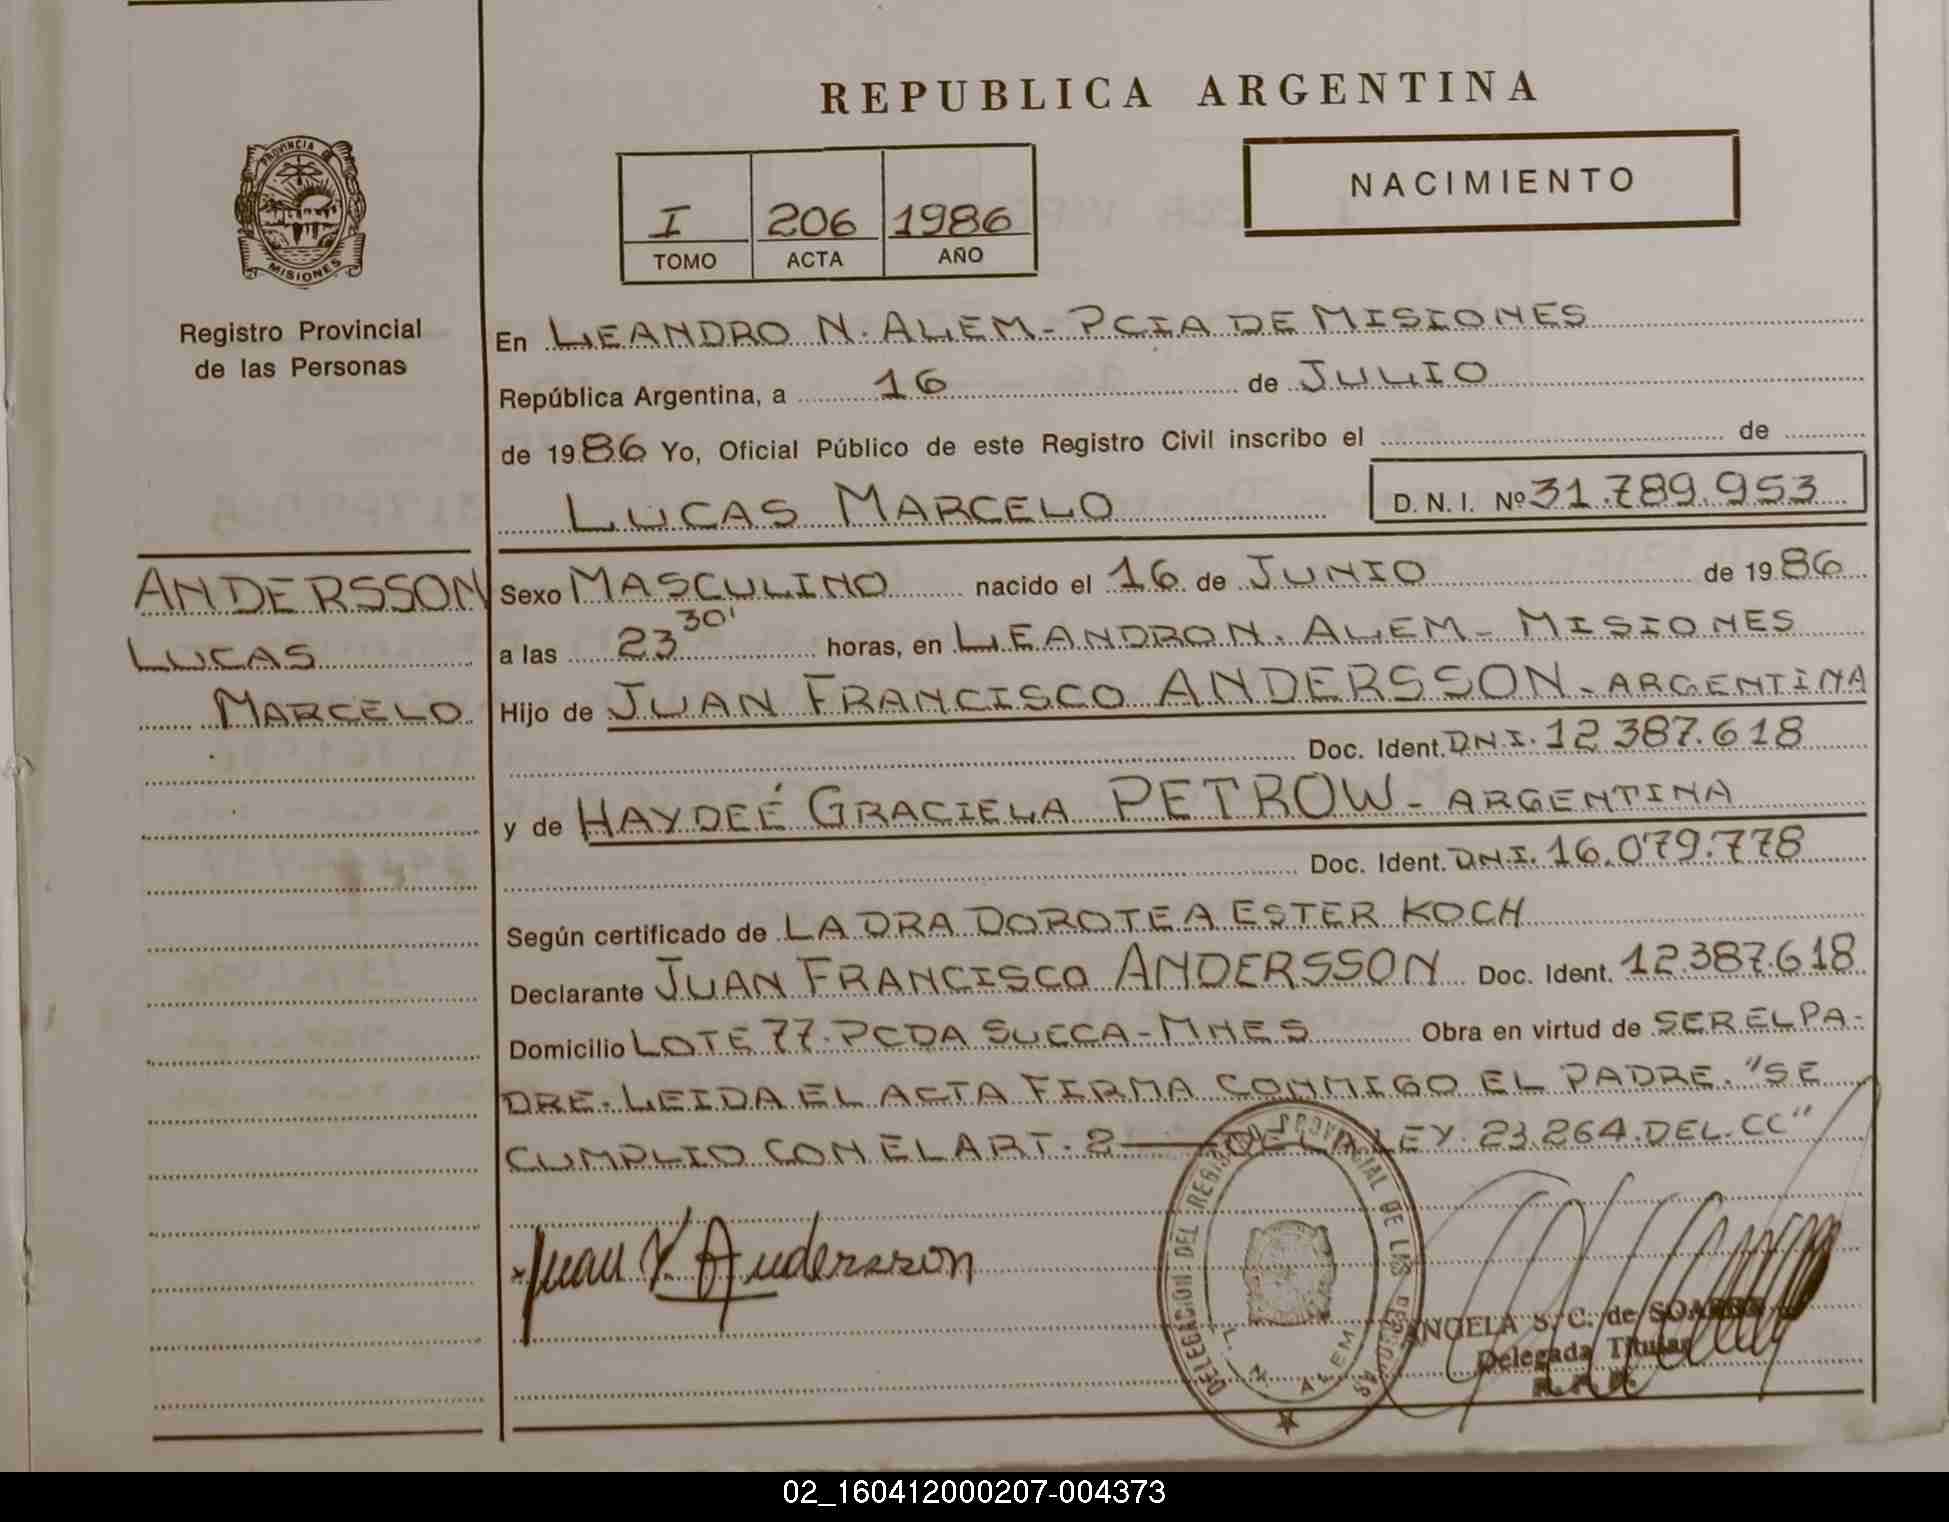 REPUBLICA ARGENTINA
PROVINCIA DE
MISIONES
Registro Provincial
de las Personas
I 206 1986
TOMO ACTA AÑO
NACIMIENTO
En LEANDRO N. ALEM - PCIA DE MISIONES
República Argentina, a 16 de JULIO
de 1986 Yo, Oficial Público de este Registro Civil inscribo el de
LUCAS MARCELO D. N. I. Nº 31.789.953
ANDERSSON
LUCAS
MARCELO
Sexo MASCULINO nacido el 16 de JUNIO de 1986
a las 23 30' horas, en LEANDRO N. ALEM - MISIONES
Hijo de JUAN FRANCISCO ANDERSSON - ARGENTINA
Doc. Ident. DNI. 12 387.618
y de HAYDEÉ GRACIELA PETROW - ARGENTINA
Doc. Ident. DNI. 16.079.778
Según certificado de LA DRA DOROTEA ESTER KOCH
Declarante JUAN FRANCISCO ANDERSSON Doc. Ident. 12.387.618
Domicilio LOTE 77. PCDA SUCCA - MNES Obra en virtud de SER EL PA-
DRE. LEIDA EL ACTA FIRMA CONMIGO EL PADRE. "SE
CUMPLIO CON EL ART. 2 — DE LA LEY. 23.264. DEL. CC"
Juan F. Andersson
DELEGACION DEL REGISTRO PROVINCIAL DE LAS PERSONAS
L. N. ALEM
ANGELA S. C. de SOAREZ
Delegada Titular
02_160412000207-004373